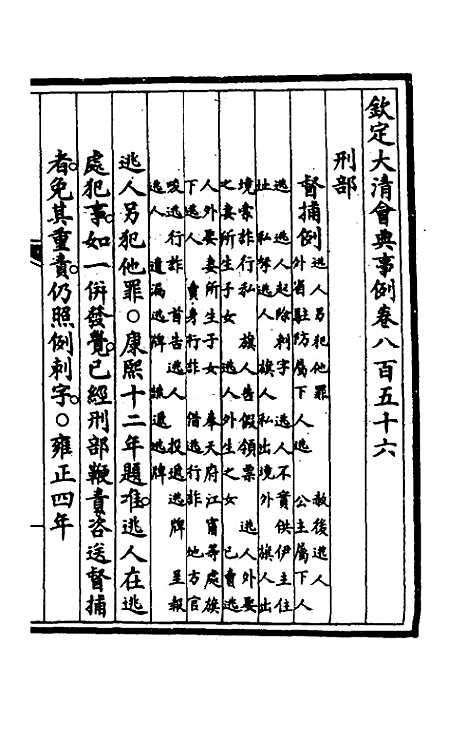 欽定大清會典事例卷八百五十六
刑部
督捕例
逃人另犯他罪 赦後逃人
外省駐防屬下人逃 公主屬下人
逃 逃人起除刺字 逃人不實供伊主住
址 私拏逃人 旗人私出境外 旗人出
境索詐行私 旗人告假領票 逃人外娶
之妻所生子女 逃人外生之女 已賣逃
人外娶妻所生子女 奉天府江甯等處旗
下逃人 賣身行詐 借逃行詐 地方官
唆逃行詐 首告逃人 投遞逃牌 呈報
逃人 遺漏逃牌 疏遞逃牌
逃人另犯他罪○康熙十二年題准。逃人在逃
處犯事。如一併發覺。已經刑部鞭責咨送督捕
者。免其重責。仍照例刺字。○雍正四年